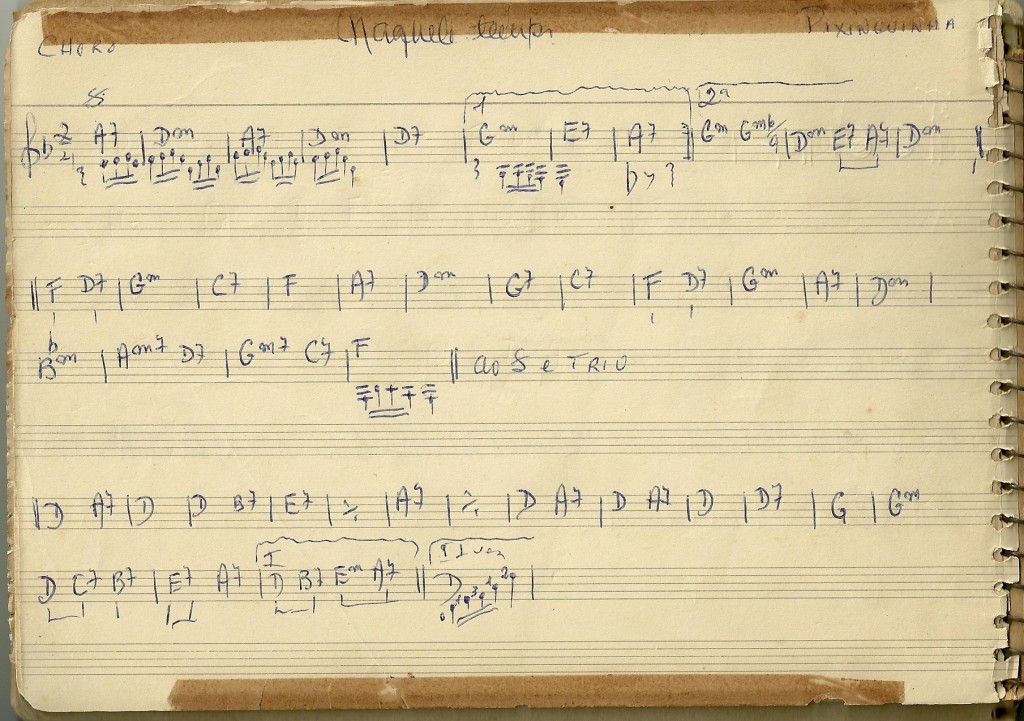 CHORO Naquele tempo PIXINGUINHA
1 2ª
2 A7 | Dm | A7 | Dm | D7 | Gm | E7 | A7 || Gm Gm6 | Dm E7 A7 | Dm ||
|| F D7 | Gm | C7 | F | A7 | Dm | G7 | C7 | F D7 | Gm | A7 | Dm |
Bbm | Am7 D7 | Gm7 C7 | F || ao S e TRIO
|| D A7 | D | D B7 | E7 | ٪ | A7 | ٪ | D A7 | D A7 | D | D7 | G | Gm
I II vez
D C7 B7 | E7 A7 | D B7 Em A7 || D |